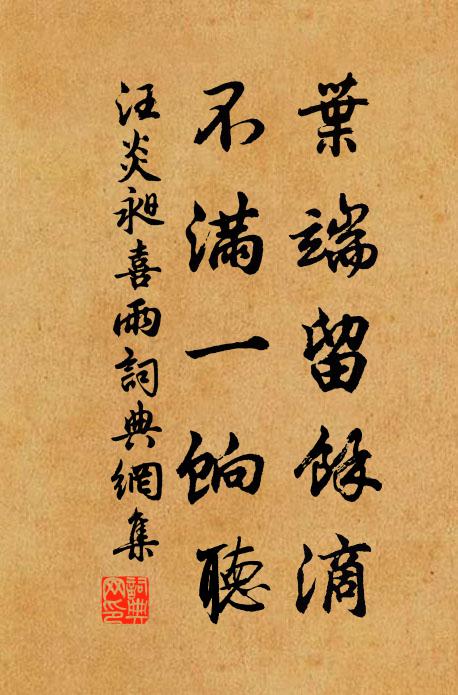 葉端留餘滴
不滿一餉聽
汪炎昶喜雨詞典網集
詞典網印